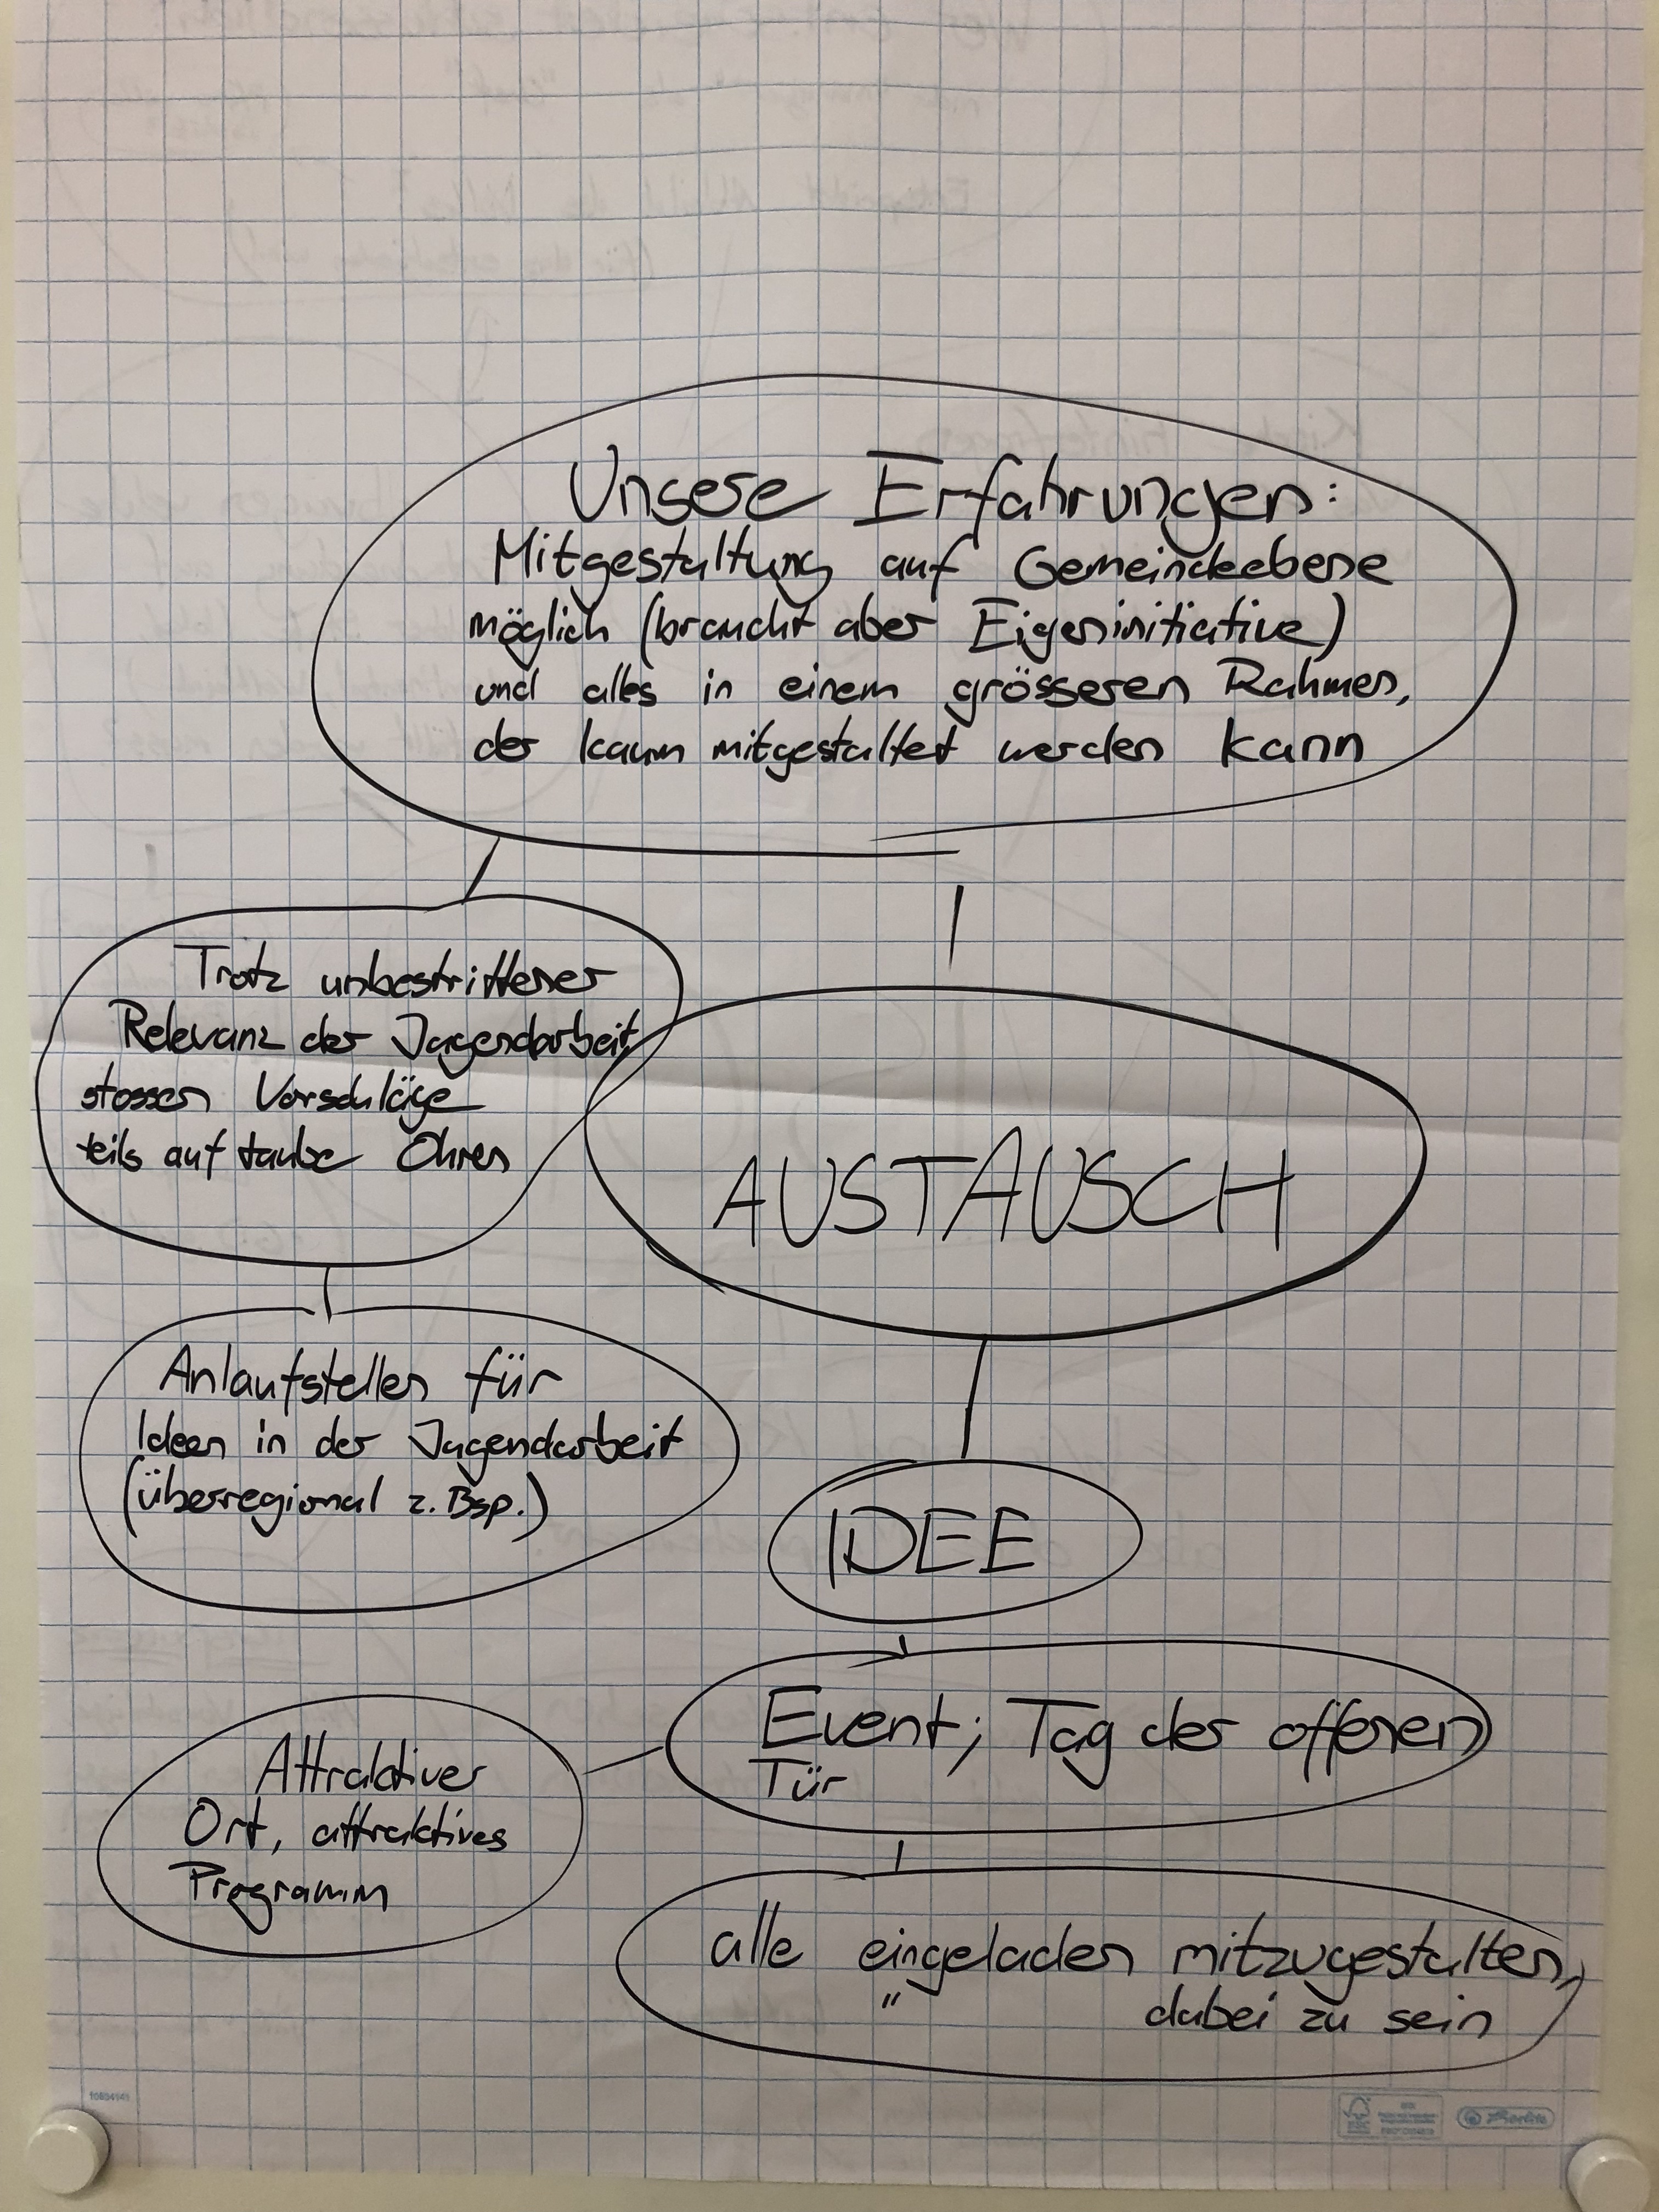 Unsere Erfahrungen:
Mitgestaltung auf Gemeindeebene
möglich (braucht aber Eigeninitiative)
und alles in einem grösseren Rahmen,
der kaum mitgestaltet werden kann
Trotz unbestrittener
Relevanz der Jugendarbeit
stossen Vorschläge
teils auf taube Ohren
AUSTAUSCH
Anlaufstellen für
Ideen in der Jugendarbeit
(überregional z. Bsp.)
IDEE
Event; Tag der offenen
Tür
Attraktiver
Ort, attraktives
Programm
alle eingeladen mitzugestalten,
" dabei zu sein
FSC
Herlitz